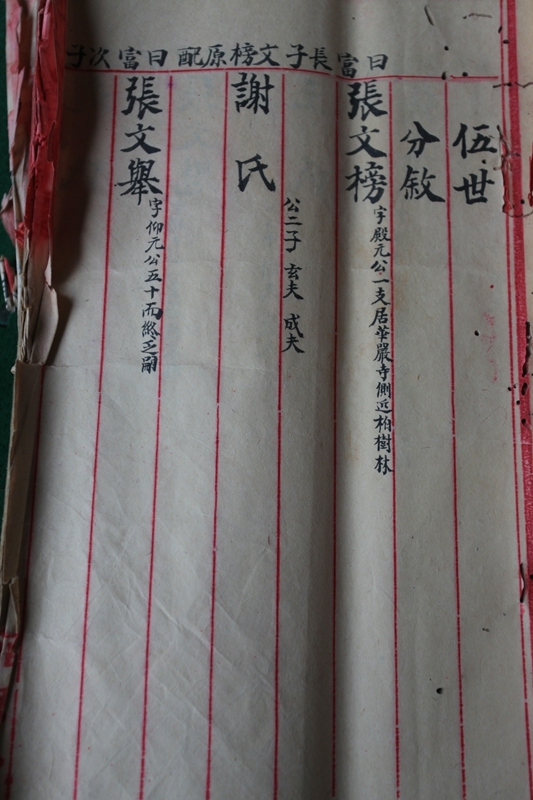 曰富長子 文榜原配 曰富次子
伍世
分敘
張文榜 字殿元公一支居華嚴寺側近柏樹林
公二子 玄夫 成夫
謝氏
張文舉 字仰元公五十而終乏嗣